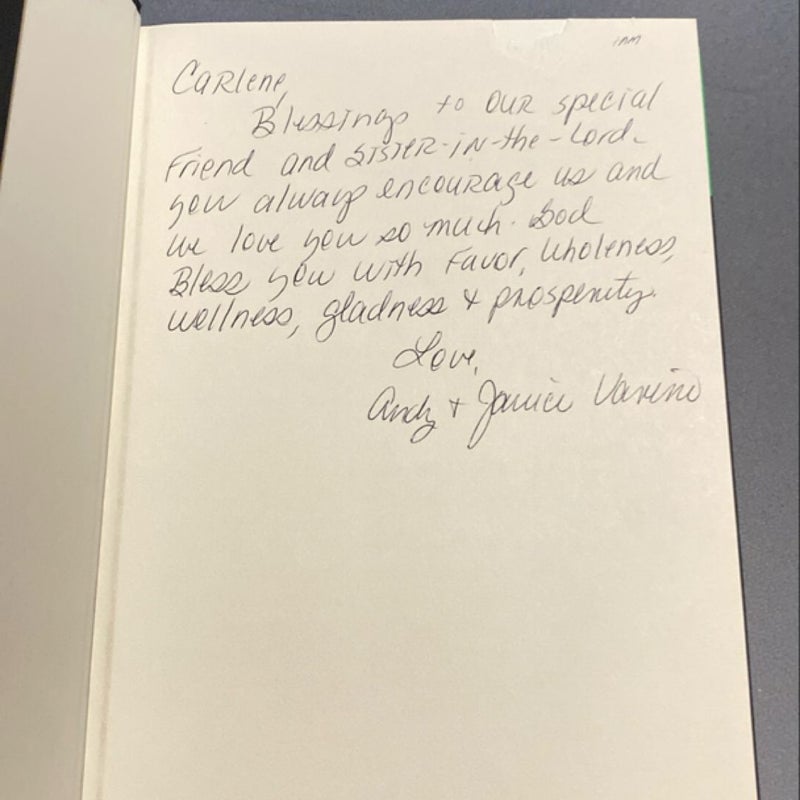 1AM
Carlene,
Blessings to our special
Friend and SISTER-iN-the-Lord.
you always encourage us and
we love you so much. God
Bless you with Favor, Wholeness,
wellness, gladness & prosperity.
Love,
Andy + Janice Varino